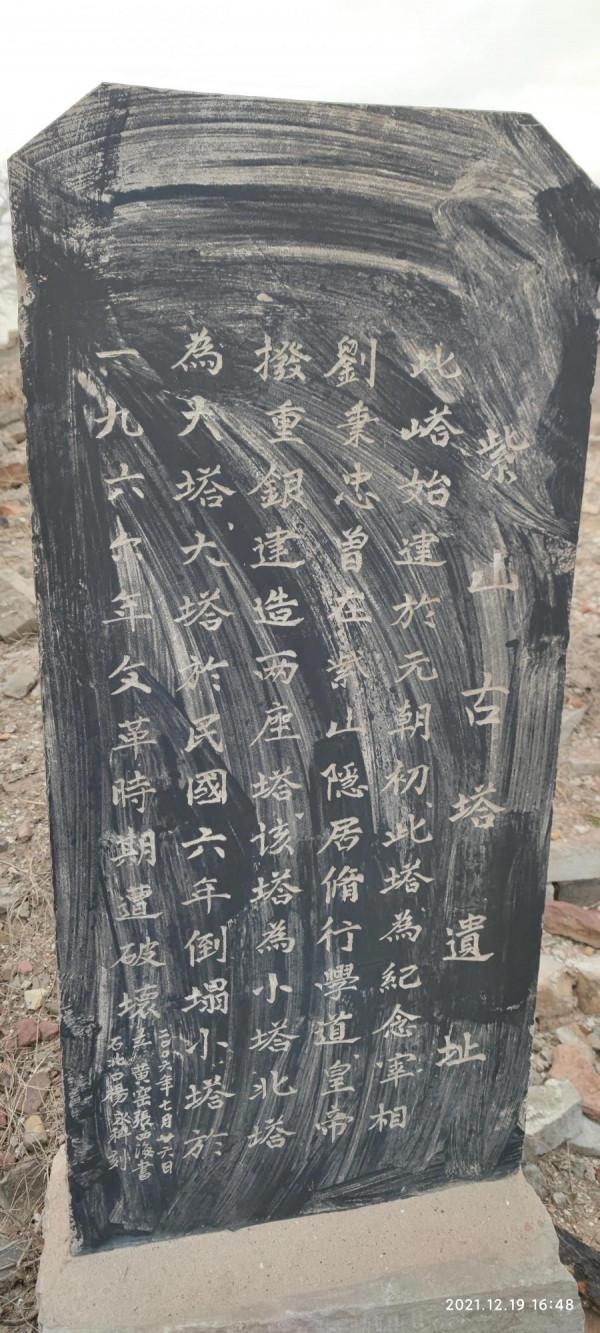 紫山古塔遺址
此嗒始建於元朝初、此塔為紀念宰相
劉秉忠曾在紫山隱居脩行學道、皇帝
撥重銀建造两座塔、该塔為小塔北塔
為大塔、大塔於民國六年倒塌、小塔於
一九六六年文革時期遭破壞
二〇〇六年七月廿六日
立 黄窑張四海書
石北口楊永科刻
2021.12.19 16:48